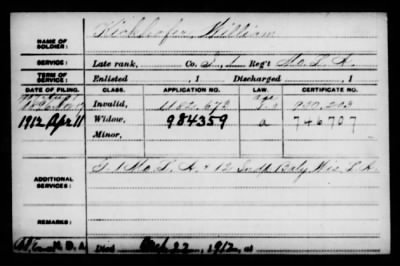 NAME OF SOLDIER: Kichhofer, William
SERVICE: Late rank, Co. I, 1 Reg't Mo. L. A.
TERM OF SERVICE: Enlisted , 1 Discharged , 1
DATE OF FILING. CLASS. APPLICATION NO. LAW. CERTIFICATE NO.
Invalid, 1182.673
1912 Apr 11 Widow, 984359 a 746707
Minor,
ADDITIONAL SERVICES: I. 1 Mo. L. A. & 12 Indp. Baty Wis. L. A.
REMARKS:
Died 22, 1912, at